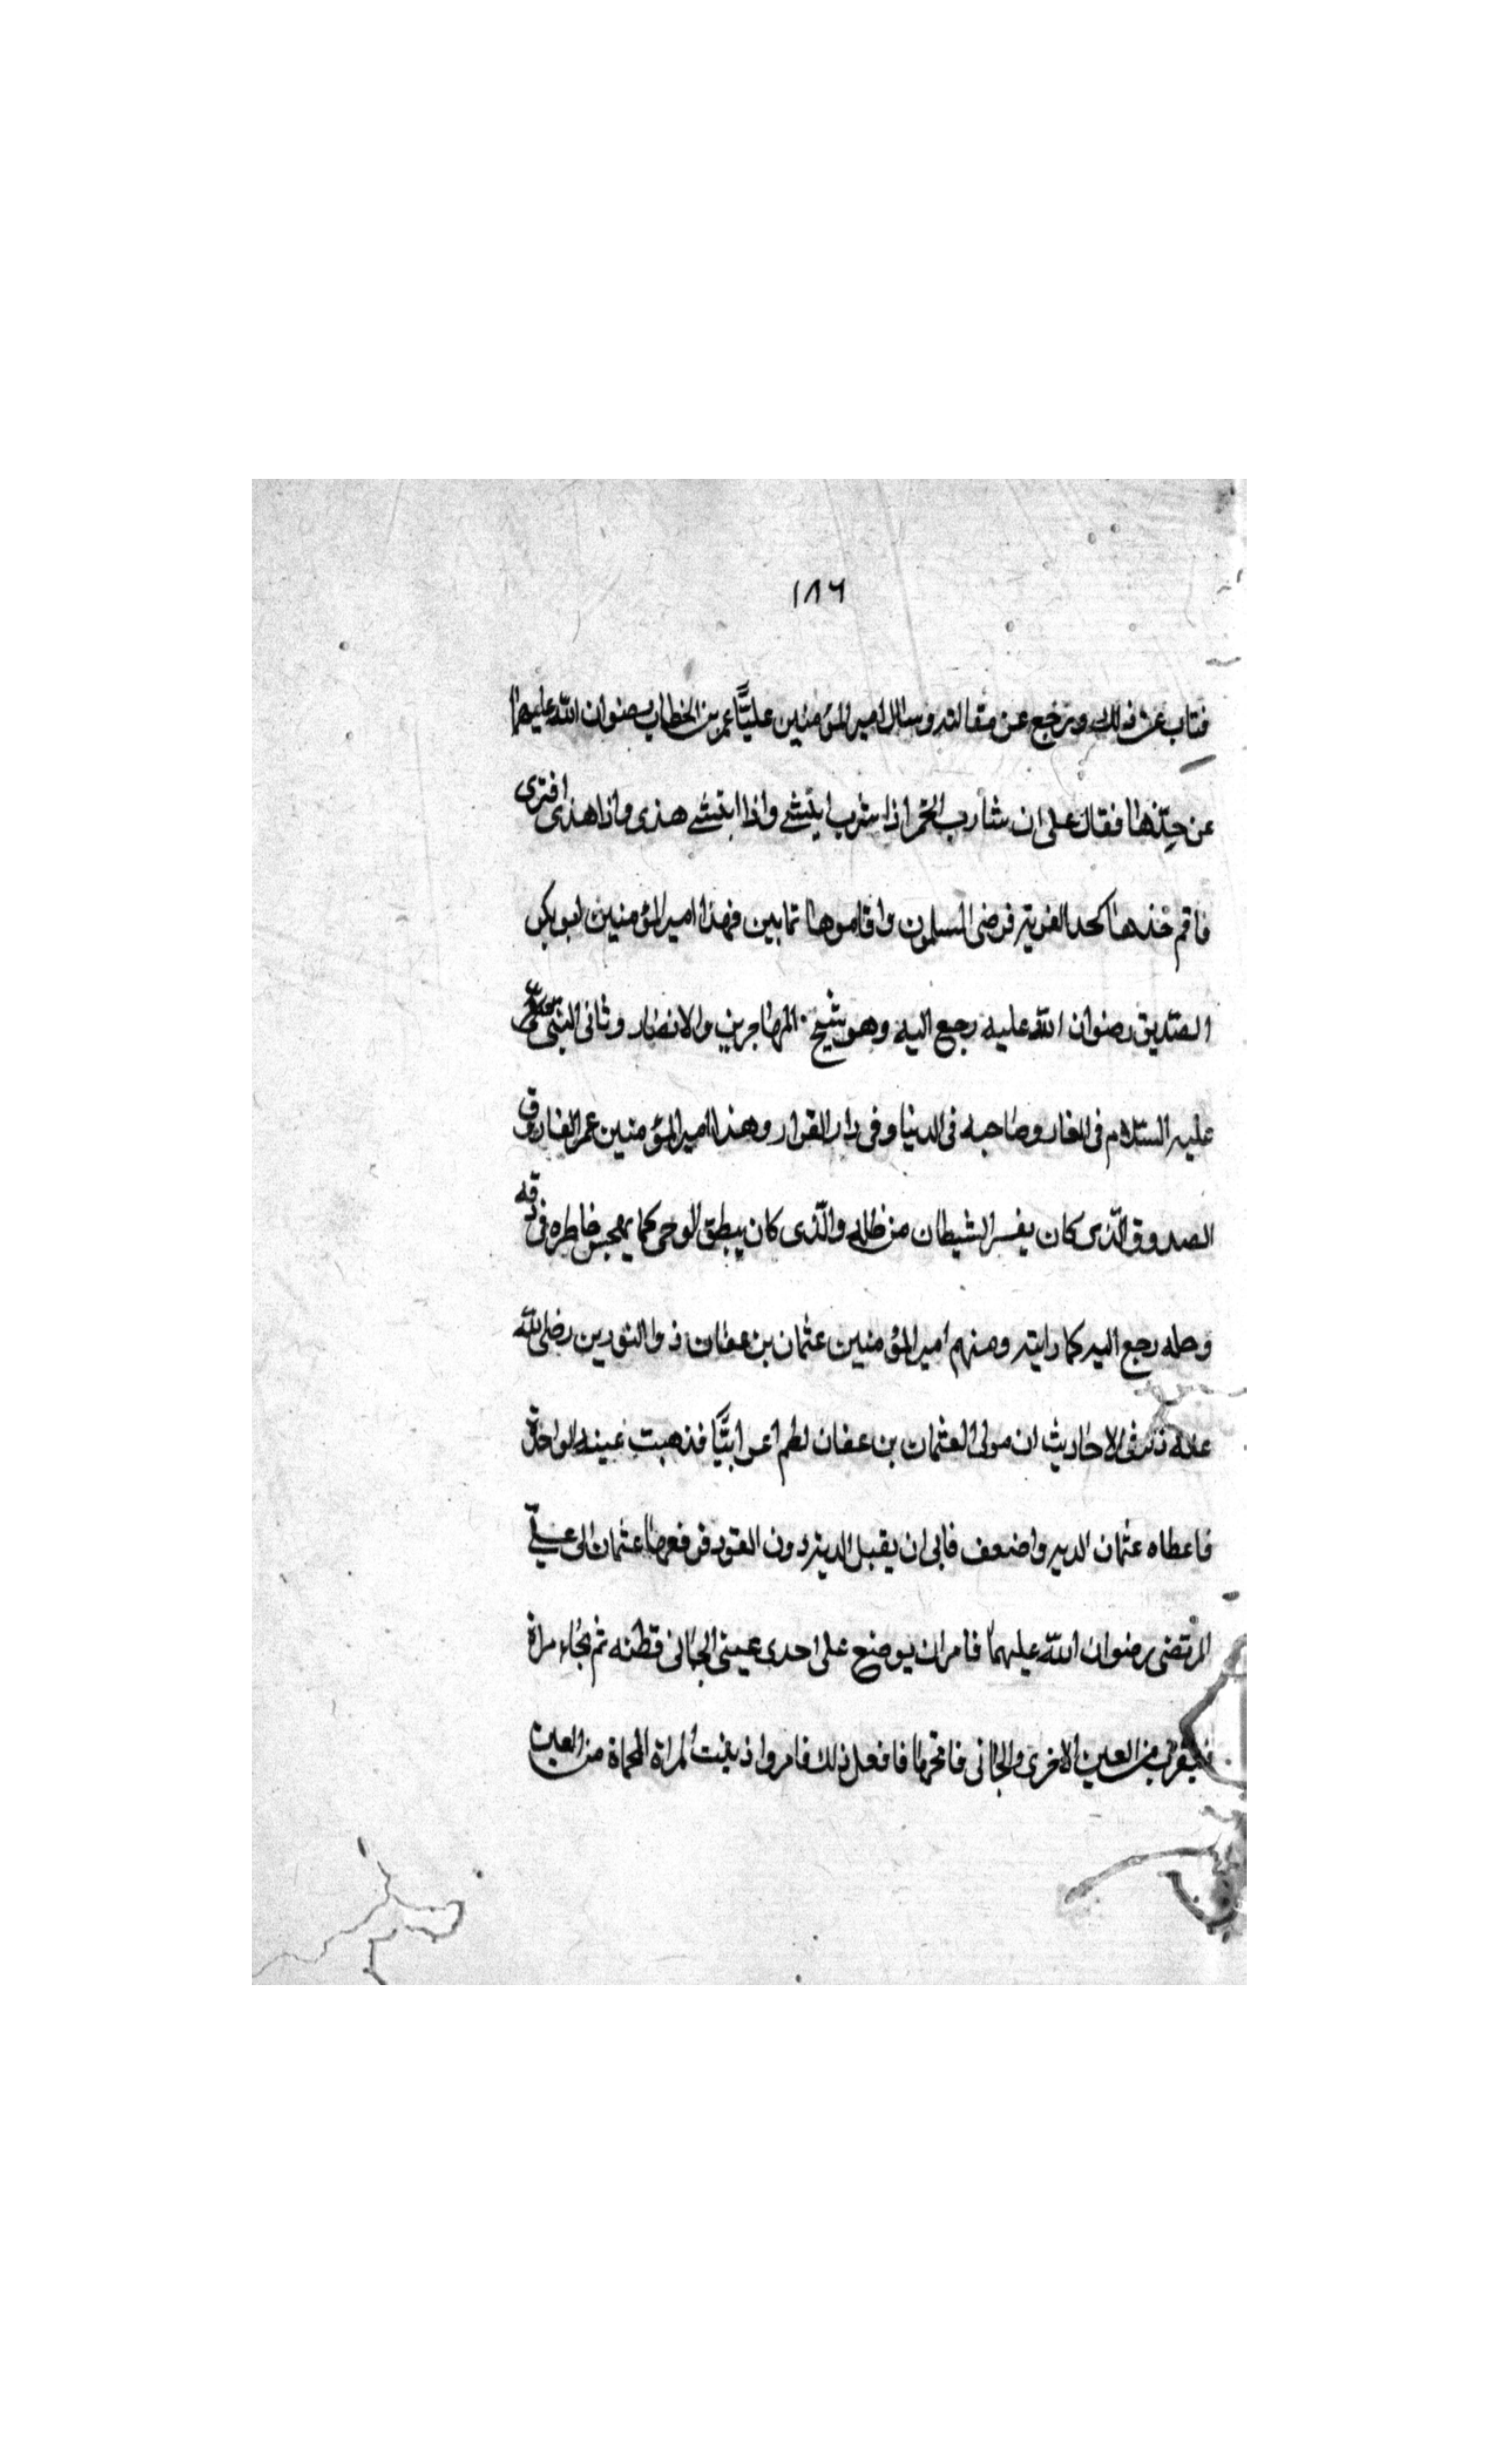 ١٨٦
فتاب عن ذلك ورجع عن مقالته وسال امير المؤمنين عليًّا عمر بن الخطاب رضوان الله عليهما
عن حدّها فقال على ان شارب الخمر اذا شرب انتشى واذا انتشى هذى واذا هذى افترى
فاقم حدها كحد الفرية فرضى المسلمون واقاموها ثمانين فهذا امير المؤمنين ابو بكر
الصديق رضوان الله عليه رجع اليه وهو شيخ المهاجرين والانصار وثانى النبى
عليه السلام فى الغار وصاحبه فى الدنيا وفى دار القرار وهذا امير المؤمنين عمر الفاروق
الصدوق الذى كان يفر الشيطان من ظله والذى كان ينطق الوحى كما يهجس خاطره فى دقه
وجله رجع اليه كما رايته ومنهم امير المؤمنين عثمان بن عفان ذو النورين رضى الله
عنه فى الاحاديث ان مولى العثمان بن عفان لطم اعرابيًّا فذهبت عينه الواحدة
فاعطاه عثمان الدية واضعف فابى ان يقبل الدية دون القود فرفعها عثمان الى علىّ
المرتضى رضوان الله عليهما فامر ان يوضع على احدى عينى الجانى قطنه ثم بجاء مراة
من العين الاخرى والجانى فافعل ذلك فامر واذيبت المراة المحماة من العين